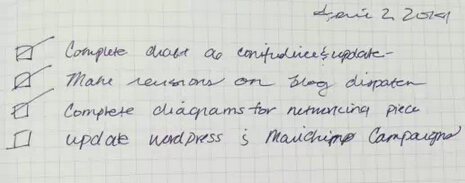 2, 2024
Complete draft
Make revisions on blog dispatch
Complete diagrams for networking piece
update wordpress & Mailchimp Campaigns